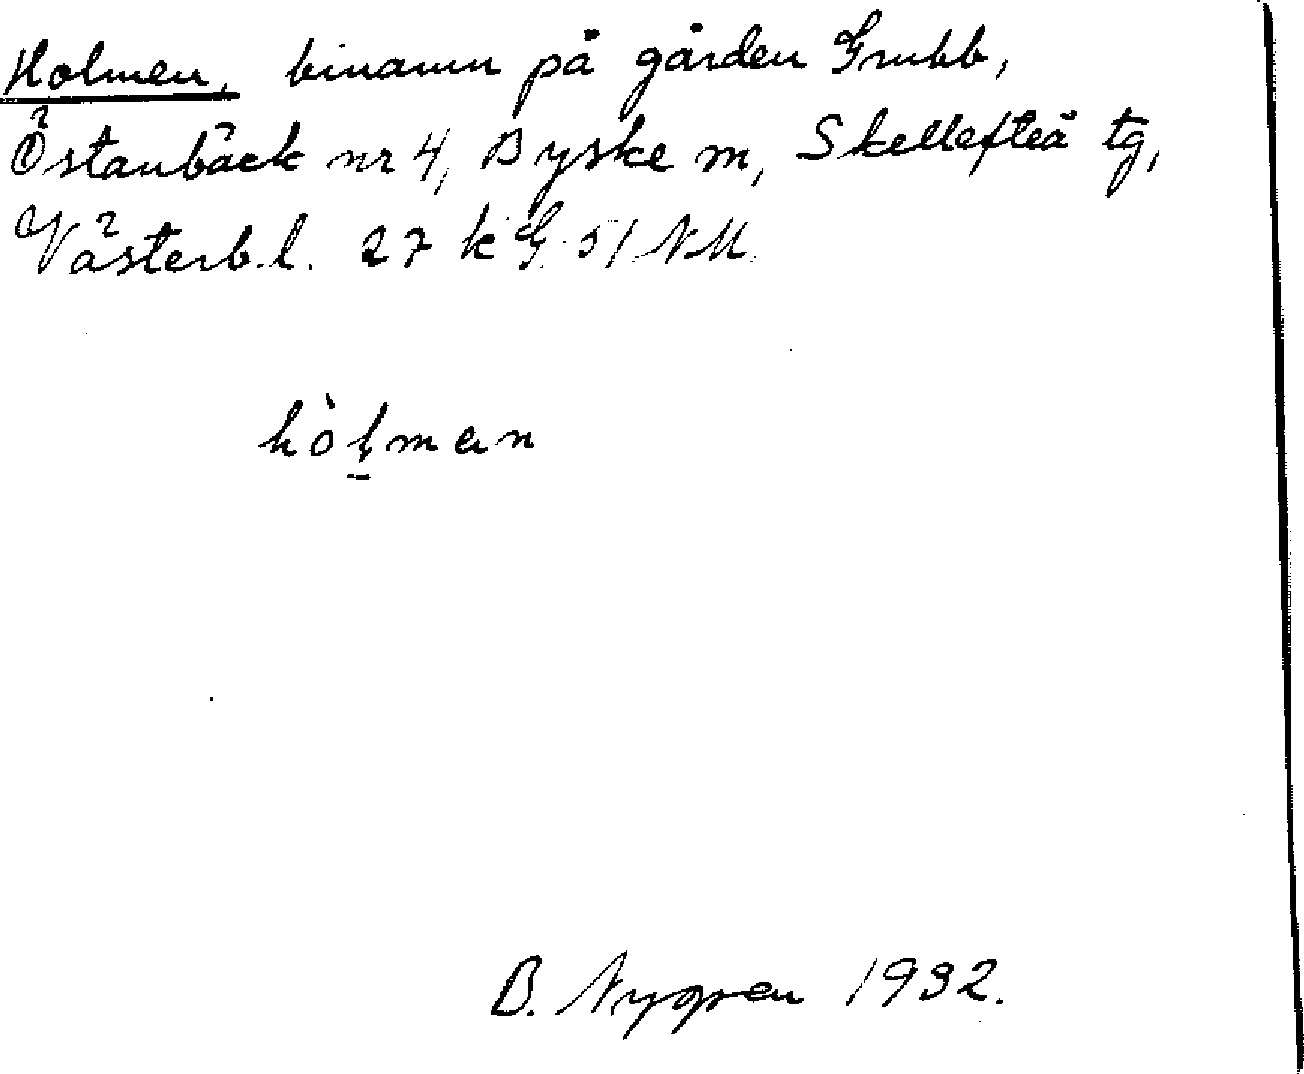 Holmen, binamn på gården Grubb,
Östanbäck nr 4, Byske m, Skellefteå tg,
Västerb. l. 27 k G. 51 NM.
hòl̠man
B. Nygren 1932.